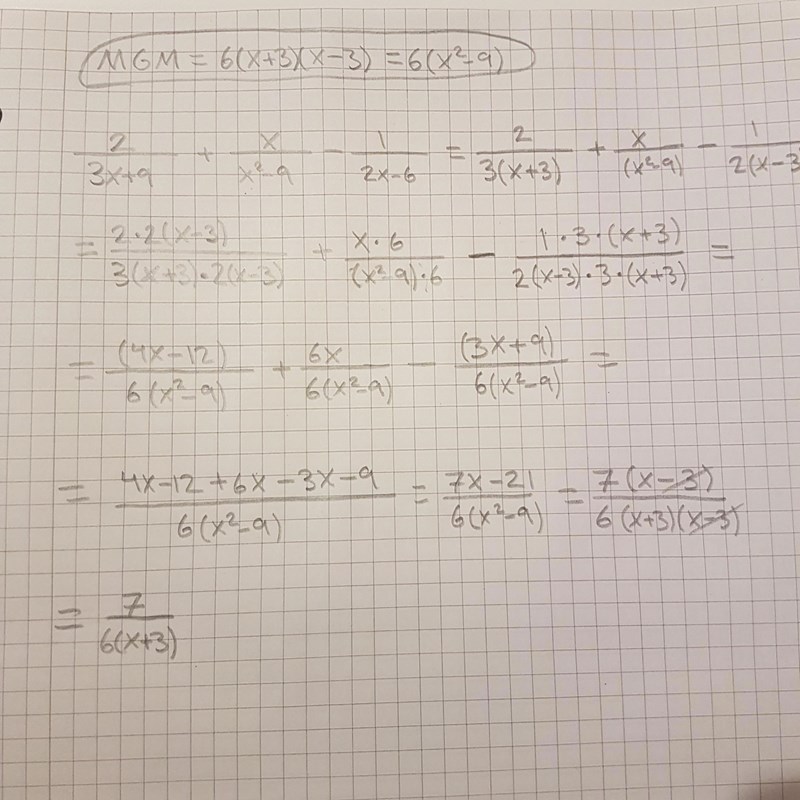 MGM = 6(x+3)(x-3) = 6(x²-9)
2/(3x+9) + x/(x²-9) - 1/(2x-6) = 2/(3(x+3)) + x/((x²-9)) - 1/(2(x-3
= 2·2(x-3)/(3(x+3)·2(x-3)) + x·6/((x²-9)·6) - 1·3·(x+3)/(2(x-3)·3·(x+3)) =
= (4x-12)/(6(x²-9)) + 6x/(6(x²-9)) - (3x+9)/(6(x²-9)) =
= (4x-12+6x-3x-9)/(6(x²-9)) = (7x-21)/(6(x²-9)) = 7(x-3)/(6(x+3)(x-3))
= 7/(6(x+3))